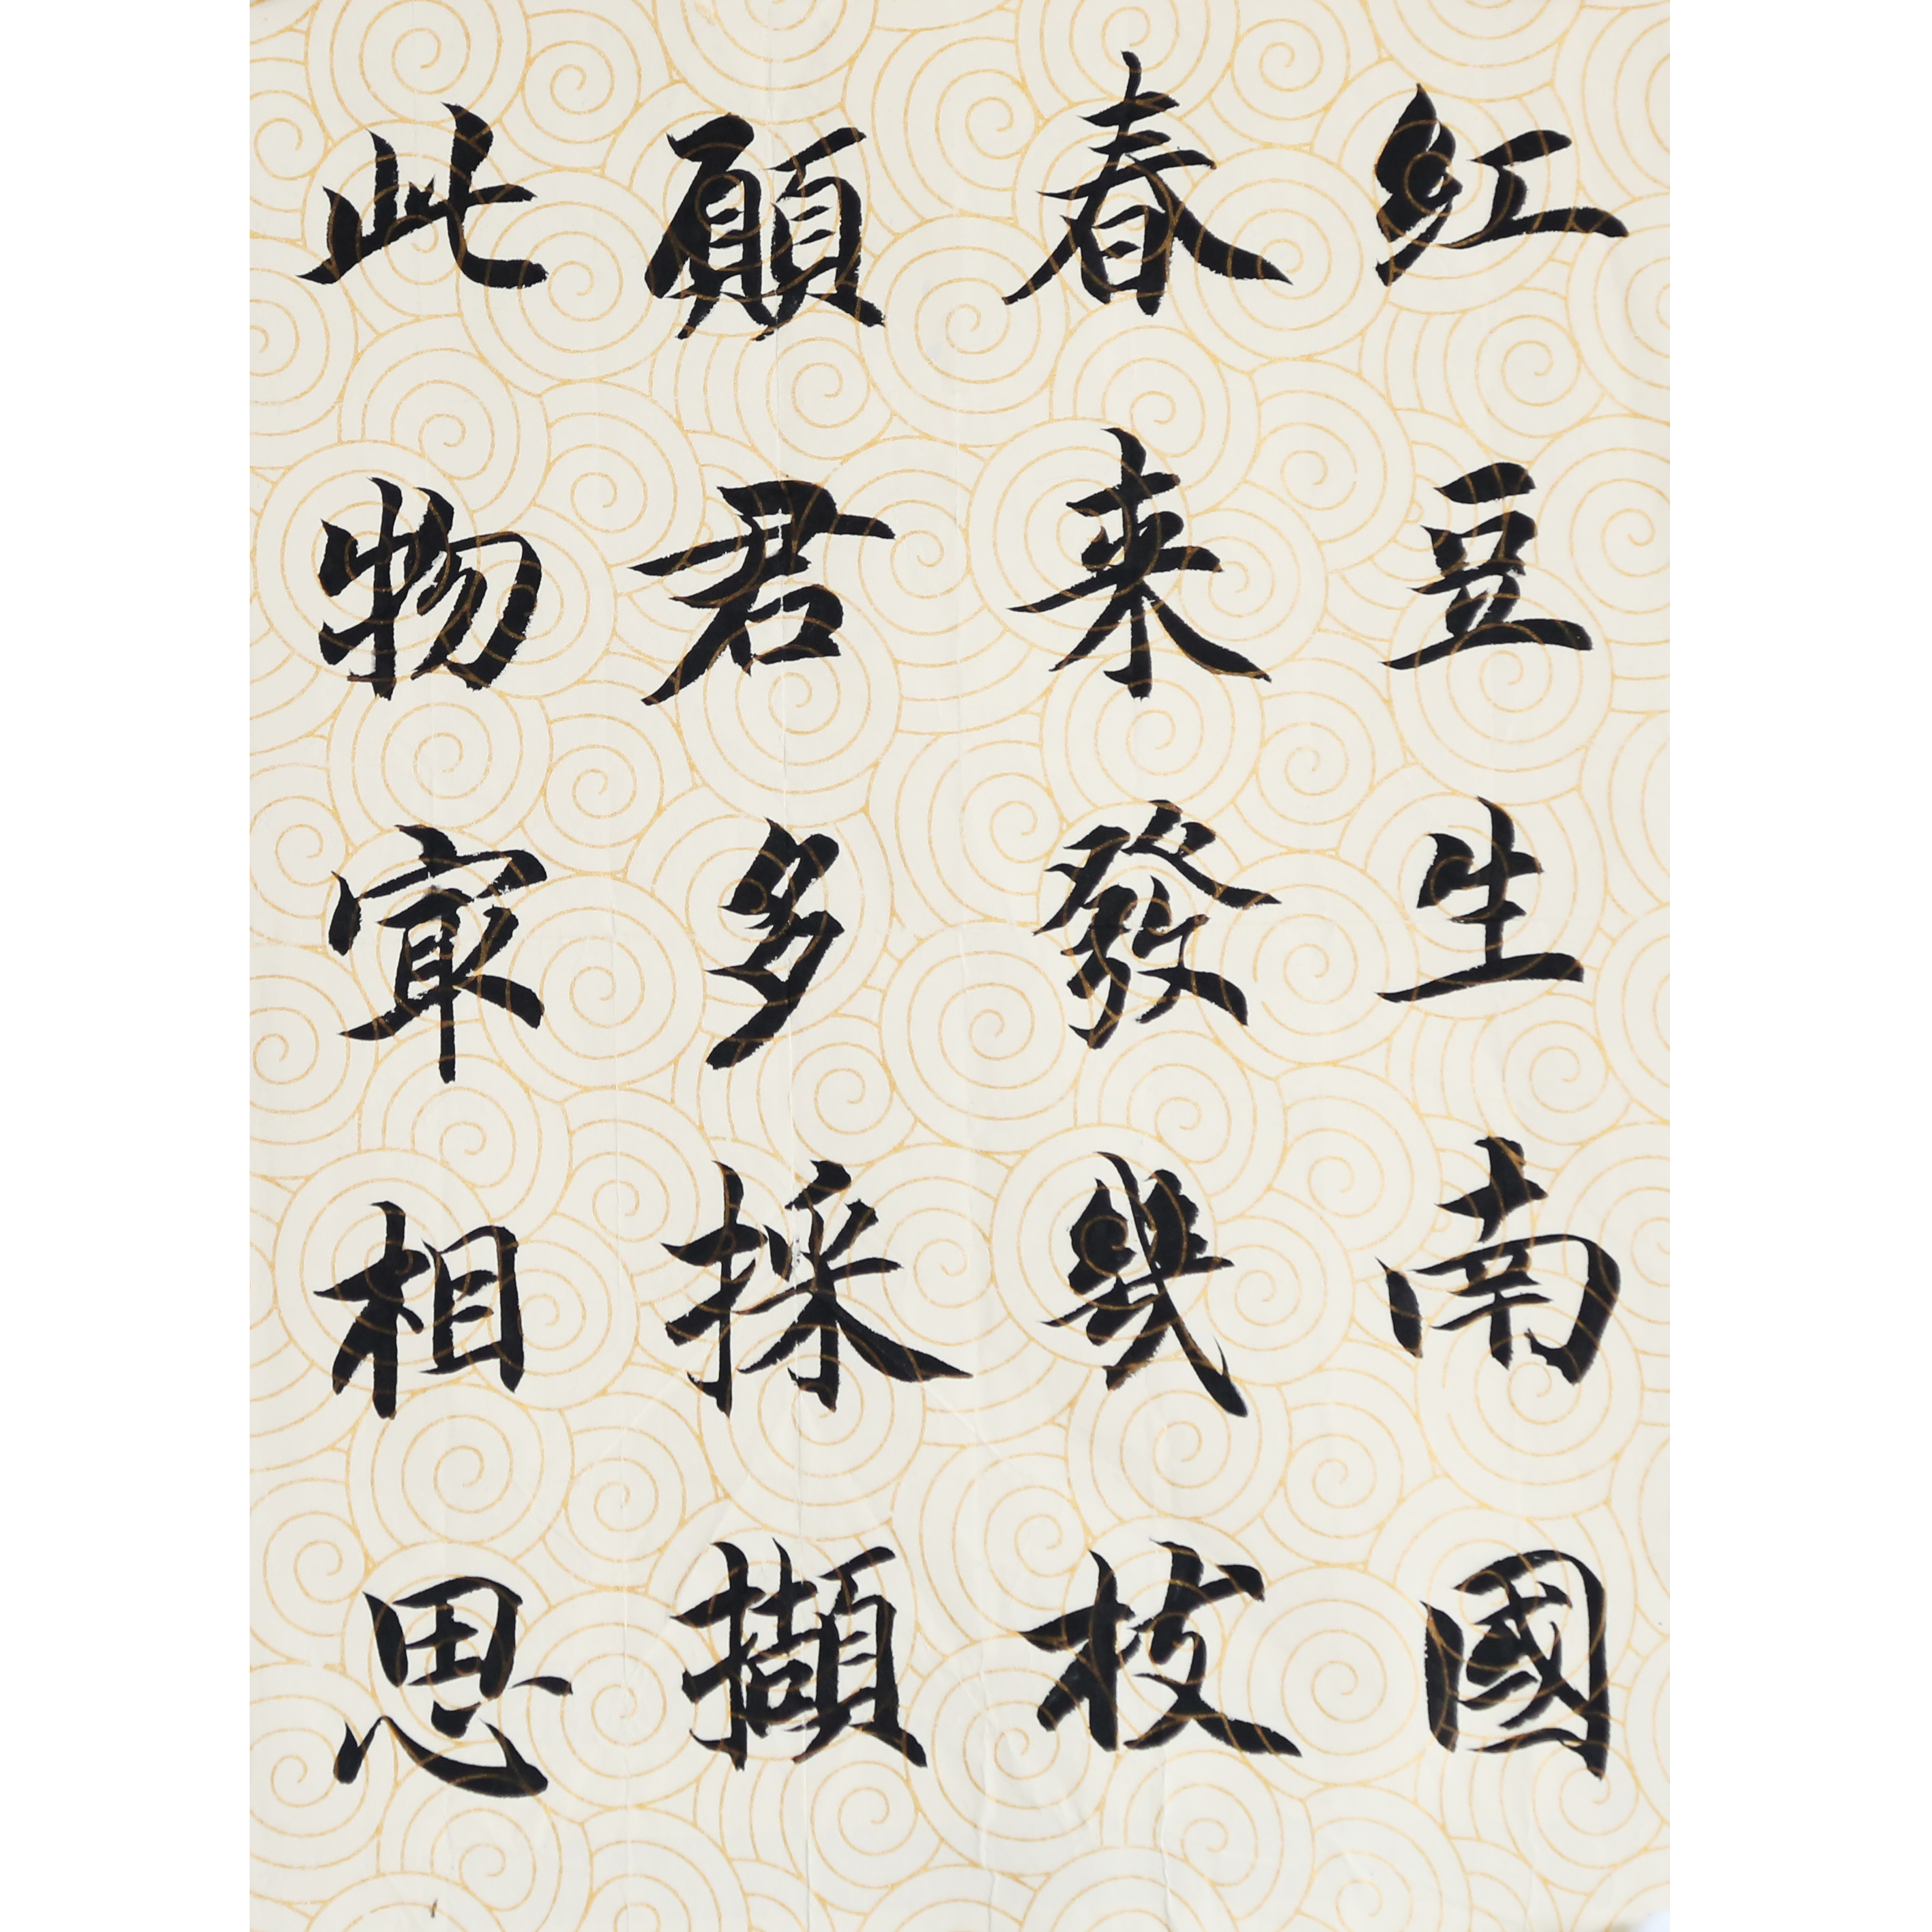 紅豆生南國
春来發幾枝
願君多採擷
此物㝡相思